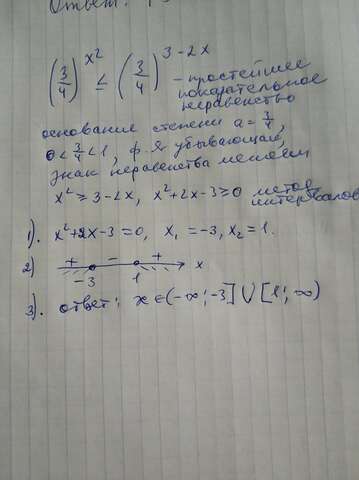 Ответ:
(3/4)^x² ≤ (3/4)^3-2x
- простейшее
показательное
неравенство
основание степени a = 3/4,
0 < 3/4 < 1, ф-я убывающая,
знак неравенства меняем
x² ≥ 3-2x, x²+2x-3 ≥ 0 метод
интервалов
1). x²+2x-3=0, x₁ = -3, x₂ = 1.
2) + - + x
-3 1
3). ответ: x ∈ (-∞; -3] ∪ [1; ∞)